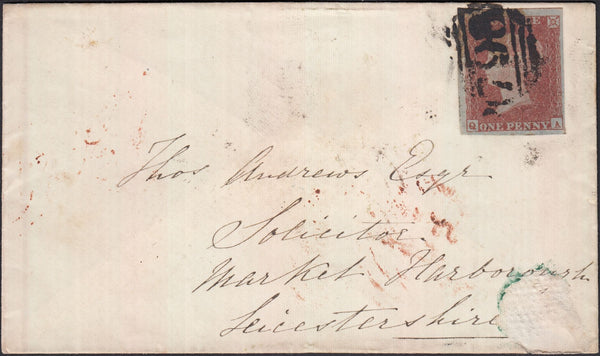 Thos Andrews Esqr
Solicitor
Market Harborough
Leicestershire
ONE PENNY
A